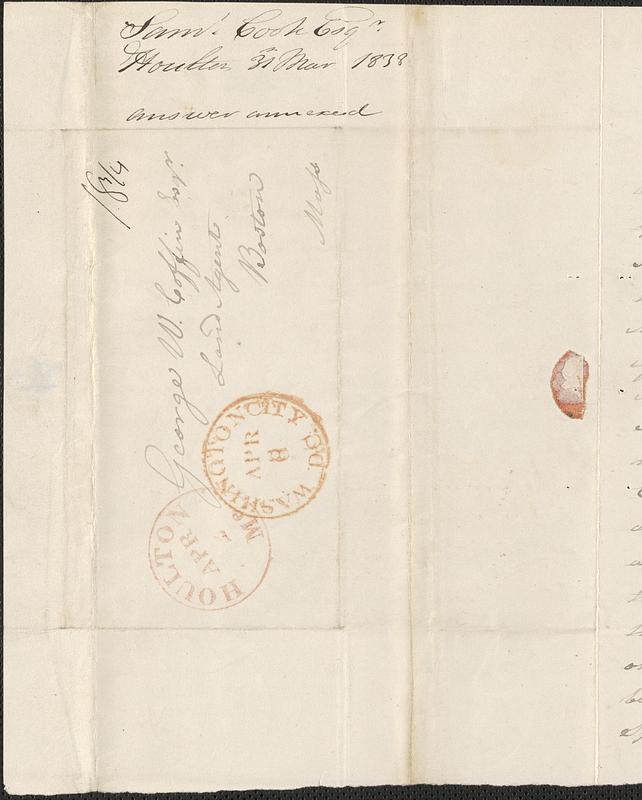 Saml Cook Esqr.
Houlton 31 Mar 1838
answer annexed
18 3/4
George W. Coffin Esqr.
Land Agent
Boston
Mass
WASHINGTON CITY D.C.
APR
8
HOULTON Me
APR